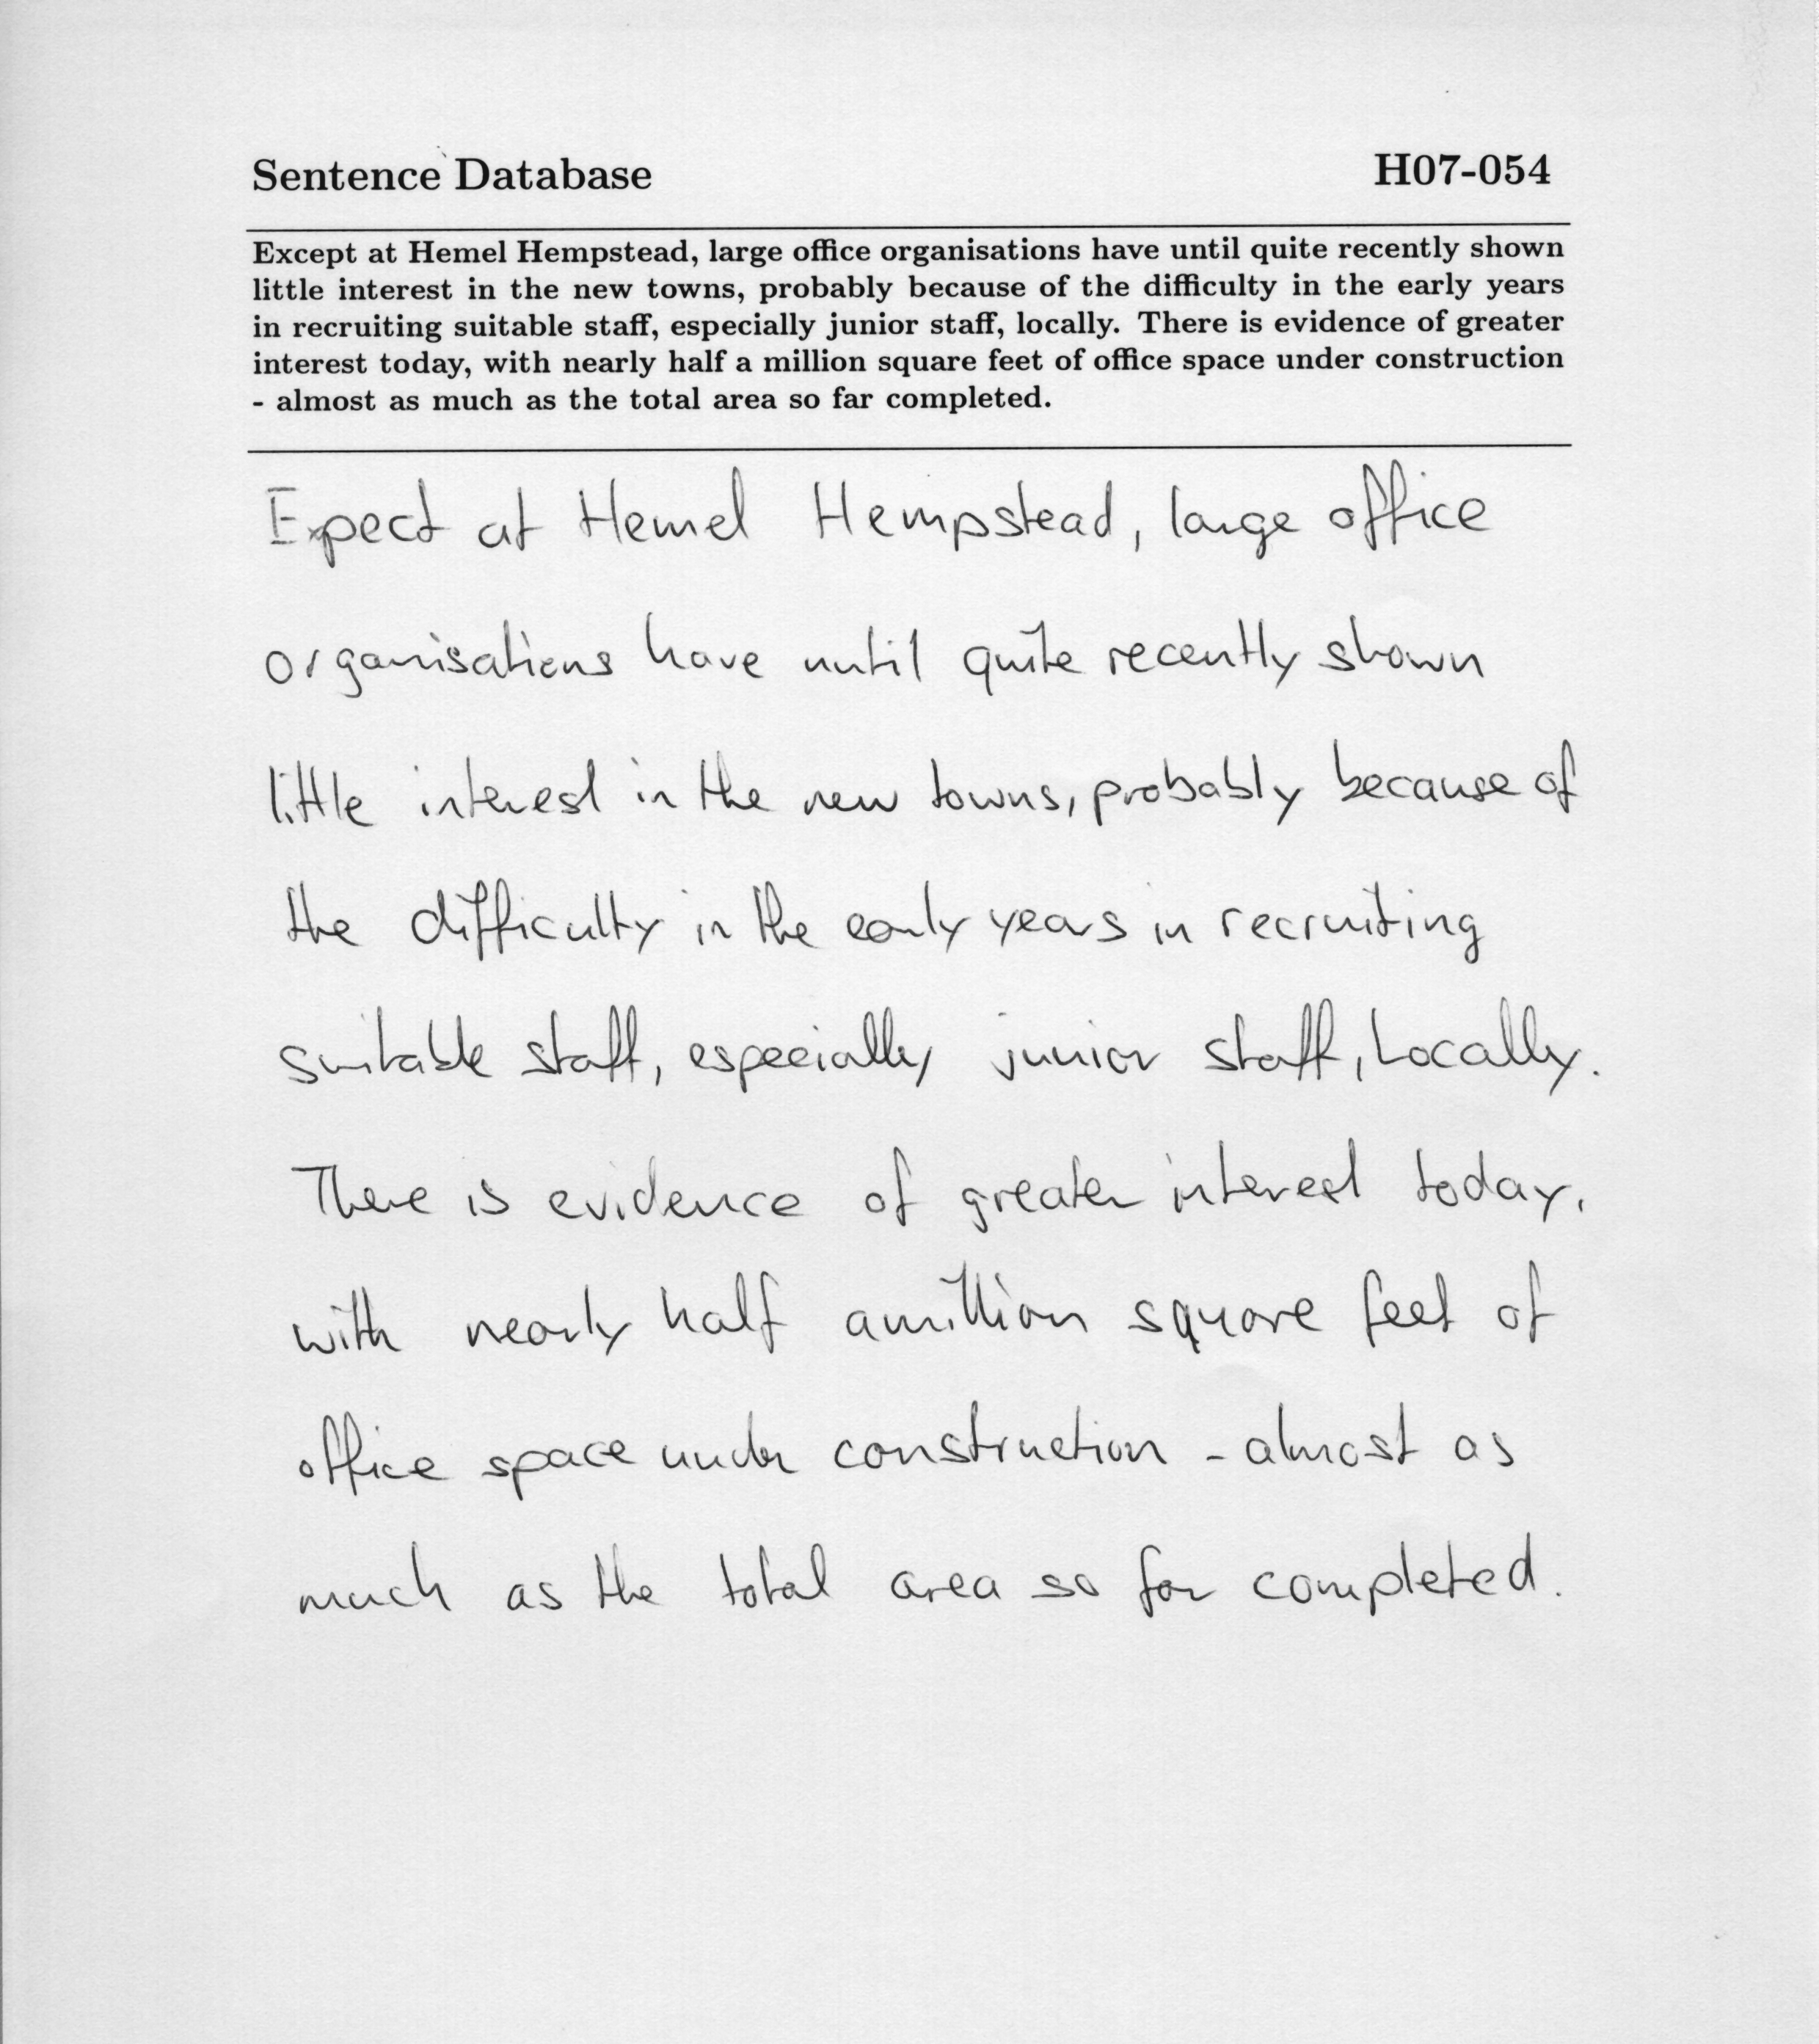 Sentence Database H07-054
Except at Hemel Hempstead, large office organisations have until quite recently shown
little interest in the new towns, probably because of the difficulty in the early years
in recruiting suitable staff, especially junior staff, locally. There is evidence of greater
interest today, with nearly half a million square feet of office space under construction
- almost as much as the total area so far completed.
Expect at Hemel Hempstead, large office
organisations have until quite recently shown
little interest in the new towns, probably because of
the difficulty in the early years in recruiting
suitable staff, especially junior staff, Locally.
There is evidence of greater interest today,
with nearly half a million square feet of
office space under construction - almost as
much as the total area so far completed.